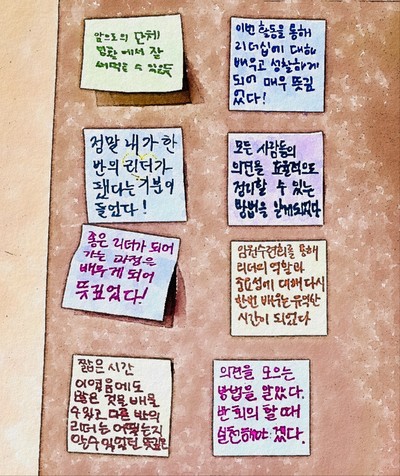 앞으로의 단체
생활에서 잘
써먹을 수 있을듯
이번 활동을 통해
리더십에 대해
배우고 성찰하게
되어 매우 뜻깊
었다!
정말 내가 한
반의 리더가
됐다는 기분이
들었다!
모든 사람들의
의견을 효율적으로
정리할 수 있는
방법을 알게되었다
좋은 리더가 되어
가는 과정을
배우게 되어
뜻깊었다!
임원수련회를 통해
리더의 역할과
중요성에 대해 다시
한번 배우는 유익한
시간이 되었다
짧은 시간
이었음에도
많은 것을 배울
수 있고 다른 반의
리더는 어떻는지
알 수 있었던
의견을 모으는
방법을 알았다.
반회의 할 때
실천해야 겠다.